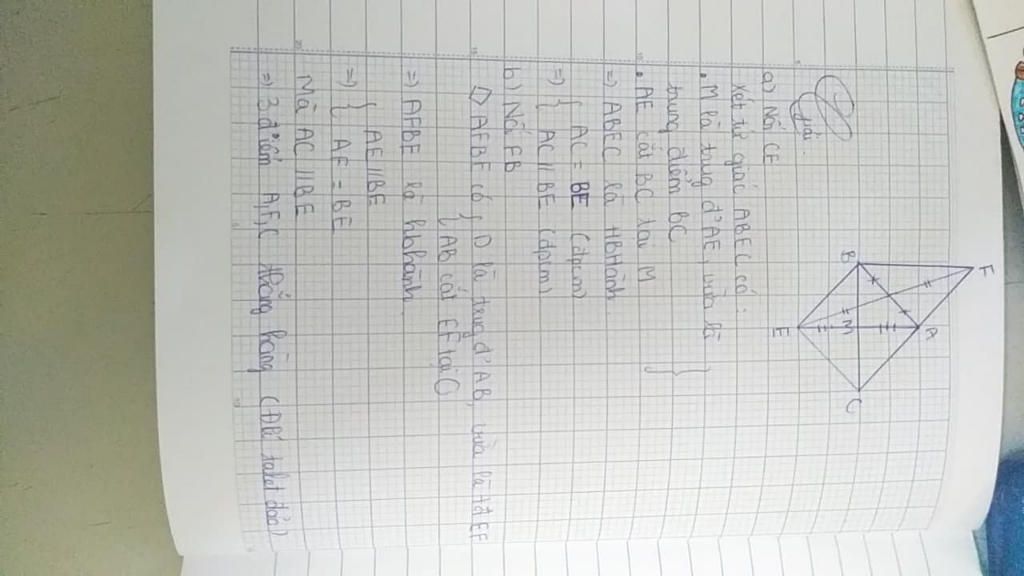 F
B
A
M
E
C
Giải
a) Nối CE
Xét tứ giác ABEC có:
• M là trung đ' AE, vừa là
trung điểm BC
• AE cắt BC tại M
=> ABEC là HBHành
=> { AC = BE (đpcm)
AC // BE (đpcm)
b) Nối FB
AFBE có { D là trung đ' AB, vừa là tđ EF
AB cắt EF tại C
=> AFBE là hbhành
=> { AE // BE
AE = BE
Mà AC // BE
=> 3 điểm A, F, C thẳng hàng (ĐL talet đảo)